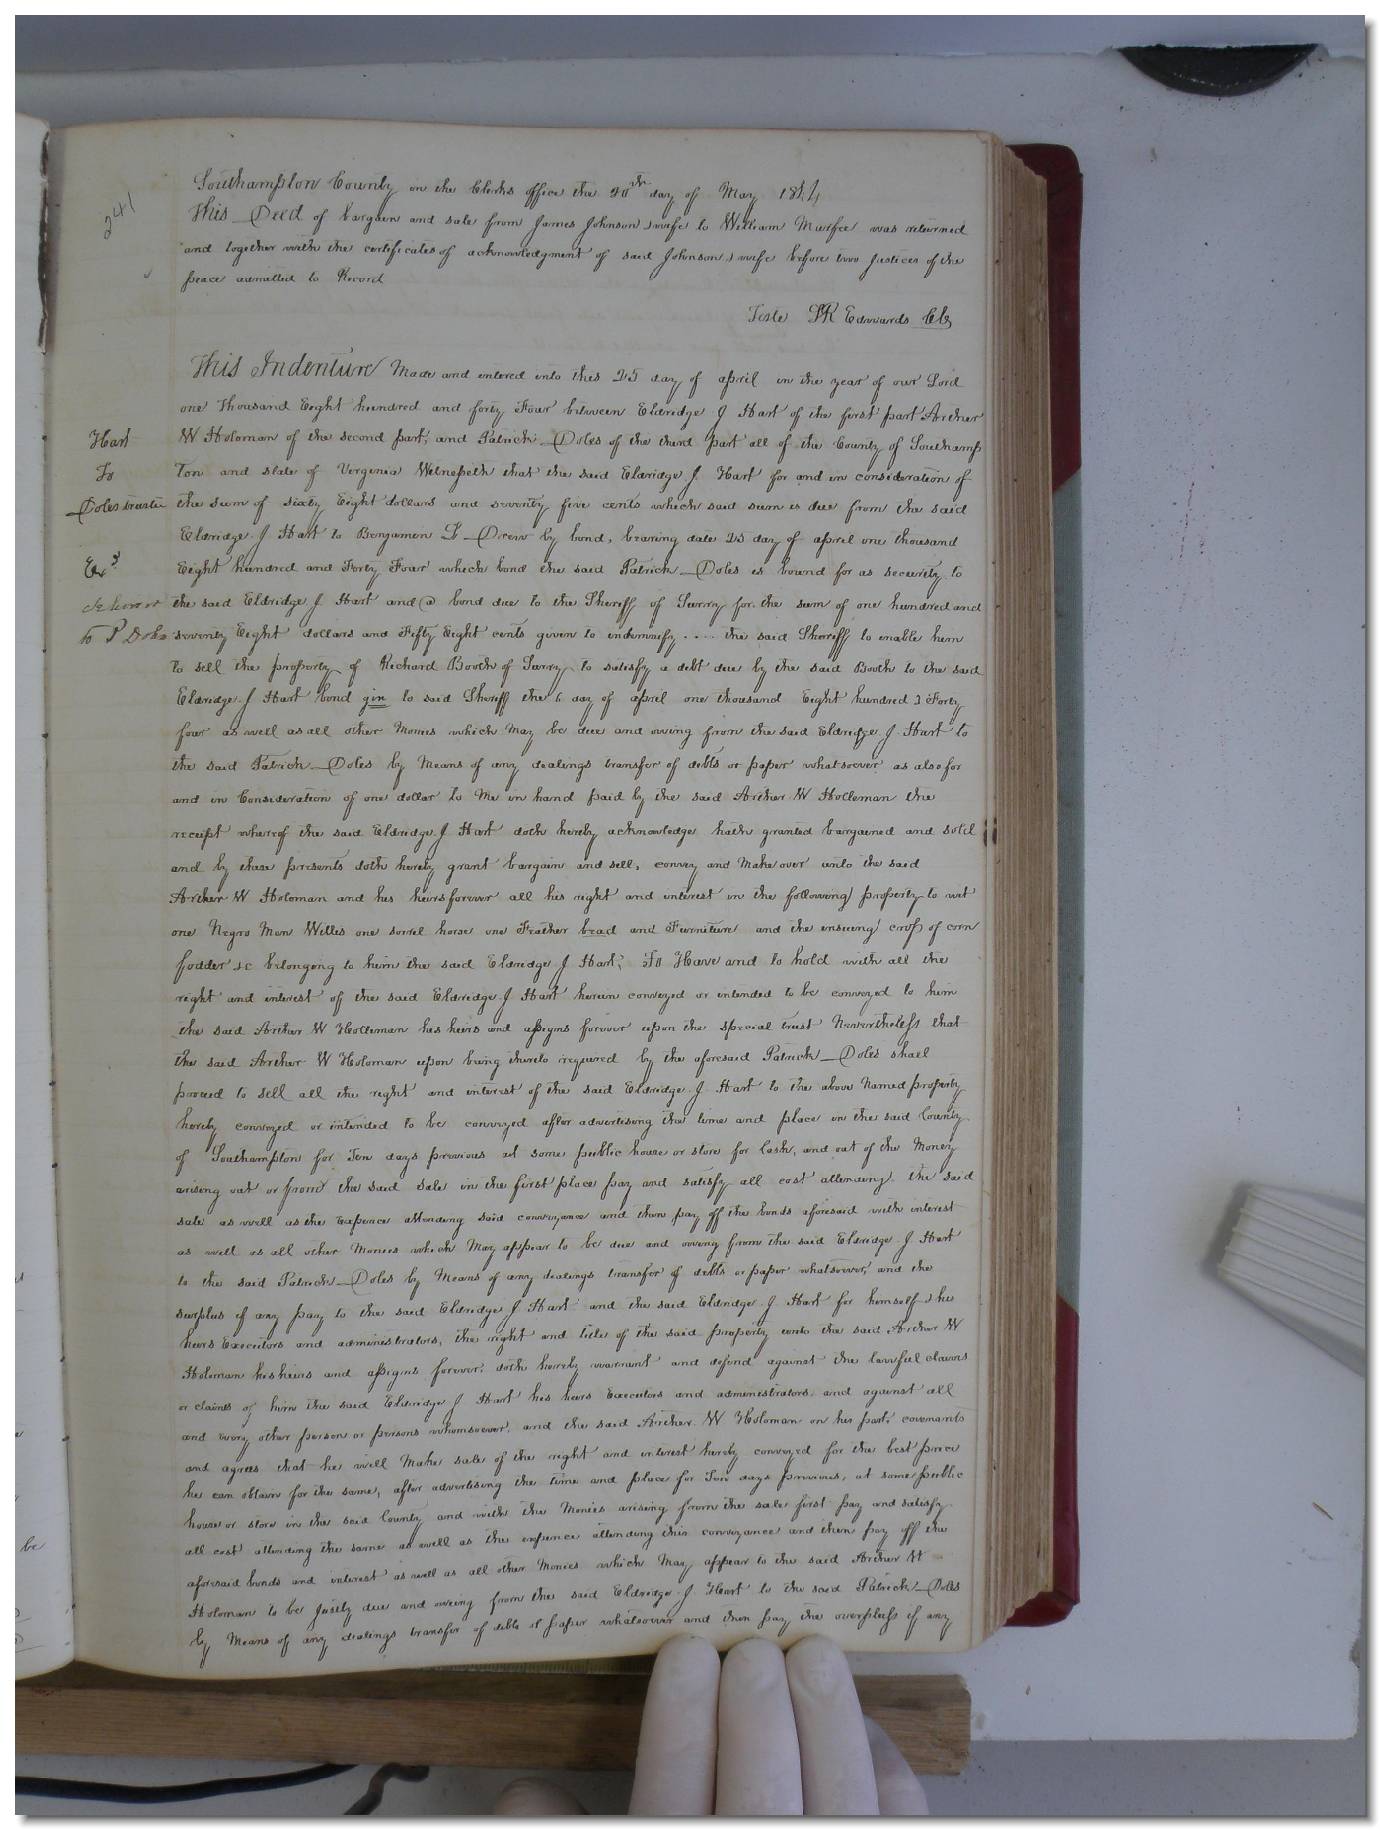 241
Southampton County in the Clerks office the 20th day of May 1844
This Deed of bargain and sale from James Johnson & wife to William Murfee was returned
and together with the certificates of acknowledgment of said Johnson & wife before two Justices of the
peace admitted to Record
Teste LR Edwards Clk
Hart
To
Doles trustee
Exd
delivered
to P Doles
This Indenture Made and entered into this 25 day of april in the year of our Lord
one Thousand Eight hundred and forty Four between Eldridge J Hart of the first part Archer
W Holoman of the second part, and Patrick Doles of the third part all of the County of Southamp
ton and state of Virginia Witnesseth that the said Eldridge J. Hart for and in consideration of
the sum of sixty Eight dollars and seventy five cents which said sum is due from the said
Eldridge J Hart to Benjamin Drew by bond, bearing date 25 day of april one thousand
Eight hundred and Forty Four which bond the said Patrick Doles is bound for as security to
the said Eldridge J Hart and @ bond due to the Sheriff of Surry for the sum of one hundred and
seventy Eight dollars and Fifty Eight cents given to indemnify .... the said Sheriff to enable him
to sell the property of Richard Booth of Surry to satisfy a debt due by the said Booth to the said
Eldridge J Hart bond gin to said Sheriff the 6 day of april one thousand Eight hundred & Forty
four as well as all other Monies which May be due and owing from the said Eldridge J. Hart to
the said Patrick Doles by Means of any dealings transfer of debts or paper whatsoever as also for
and in Consideration of one dollar to Me in hand paid by the said Archer W Holleman the
receipt whereof the said Eldridge J Hart doth hereby acknowledge hath granted bargained and sold
and by these presents doth hereby grant bargain and sell, convey and Make over unto the said
Archer W Holoman and his heirs forever all his right and interest in the following property to wit
one Negro Man Willis one sorrel horse one Feather bead and Furniture and the ensuing crop of corn
fodder &c belonging to him the said Eldridge J Hart, To Have and to hold with all the
right and interest of the said Eldridge J Hart herein conveyed or intended to be conveyed to him
the said Archer W Holleman his heirs and assigns forever upon the special trust Nevertheless that
the said Archer W Holoman upon being thereto required by the aforesaid Patrick Doles shall
proceed to sell all the right and interest of the said Eldridge J. Hart to the above Named property
hereby conveyed or intended to be conveyed after advertising the time and place in the said County
of Southampton for Ten days previous at some public house or store for Cash, and out of the Money
arising out or from the said sale in the first place pay and satisfy all cost attending the said
sale as well as the Expence attending said conveyance and then pay off the bonds aforesaid with interest
as well as all other Monies which May appear to be due and owing from the said Eldridge J Hart
to the said Patrick Doles by Means of any dealings transfer of debts or paper whatsoever, and the
surplus if any pay to the said Eldridge J Hart and the said Eldridge J Hart for himself & he
heirs Executors and administrators, the right and title of the said property unto the said Archer W
Holoman his heirs and assigns forever, doth hereby warrant and defend against the lawful claims
or claims of him the said Eldridge J Hart his heirs Executors and administrators and against all
and every other person or persons whomsoever, and the said Archer W Holoman on his part, covenants
and agrees that he will Make sale of the right and interest hereby conveyed for the best price
he can obtain for the same, after advertising the time and place for Ten days previous, at some public
house or store in the said County and with the Monies arising from the sale first pay and satisfy
all cost attending the same as well as the expence attending this conveyance and then pay off the
aforesaid bonds and interest as well as all other Monies which May appear to the said Archer W
Holoman to be Justly due and owing from the said Eldridge J. Hart to the said Patrick Doles
by Means of any dealings transfer of debts or paper whatsoever and then pay the overpluss if any
be